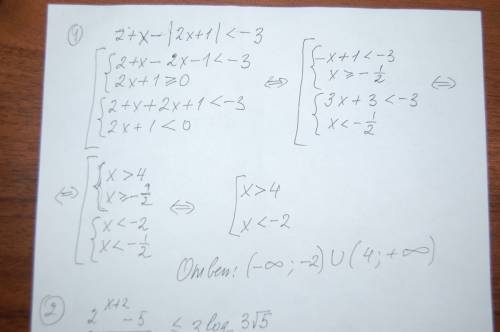 ① 2+x-|2x+1|<-3
[ { 2+x-2x-1<-3
2x+1≥0
{ 2+x+2x+1<-3
2x+1<0
⇔ [ { -x+1<-3
x≥-1/2
{ 3x+3<-3
x<-1/2 ⇔
⇔ [ { x>4
x≥-1/2
{ x<-2
x<-1/2
⇔ [ x>4
x<-2
Ответ: (-∞;-2)∪(4;+∞)
② 2^(x+2) -5 ≤ 3 log 3√5